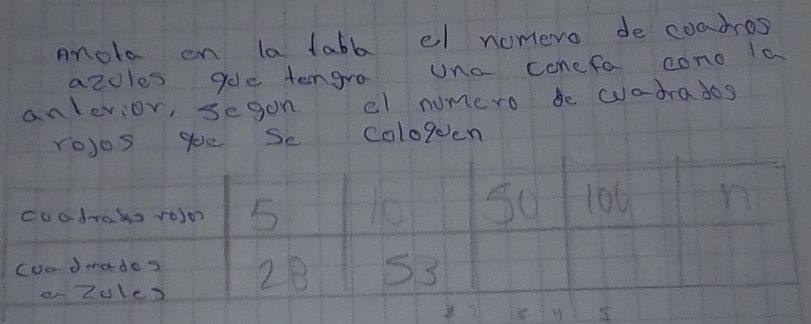 Anota en la tabla el numero de coadros
azoles que tengra una cenefa como la
anterior, segon el numero de cuadrados
rojos que se coloquen
coadrados rojos 5 10 50 100 n
coadrados 28 53
azules